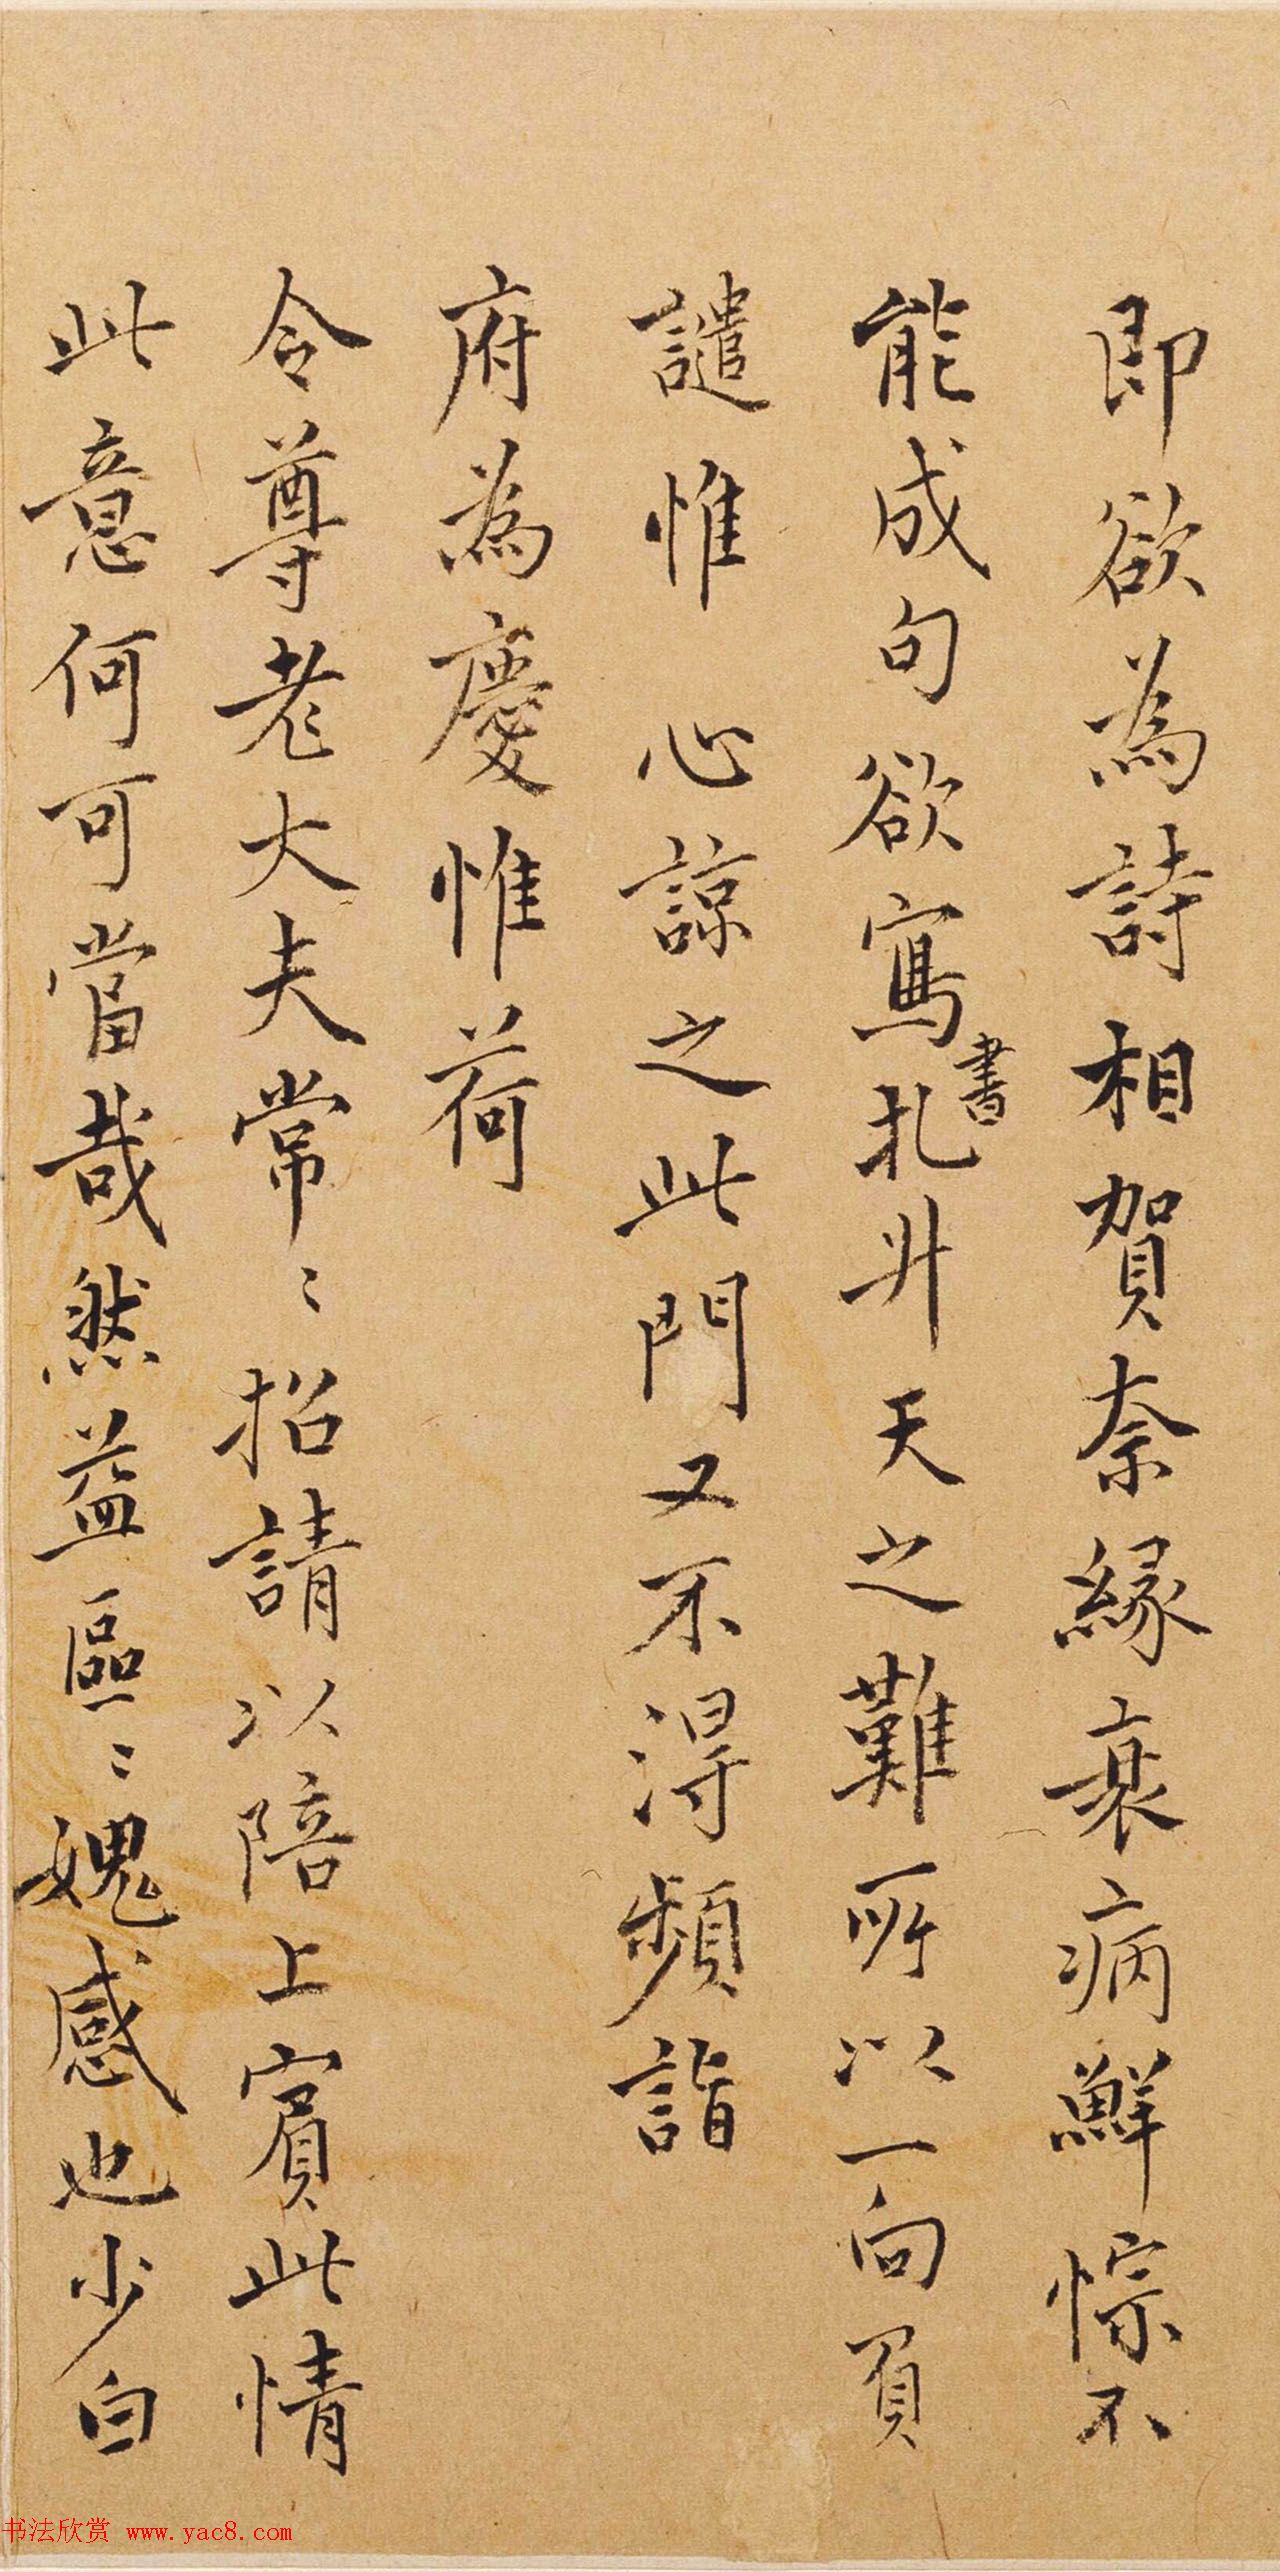 即欲為詩相賀奈緣衰病鮮悰不
能成句欲寫書札升天之難所以一向負
譴惟心諒之此門又不得頻詣
府為慶惟荷
令尊老大夫常〻招請以陪上賓此情
此意何可當哉然益區〻媿感也少白
书法欣赏 www.yac8.com